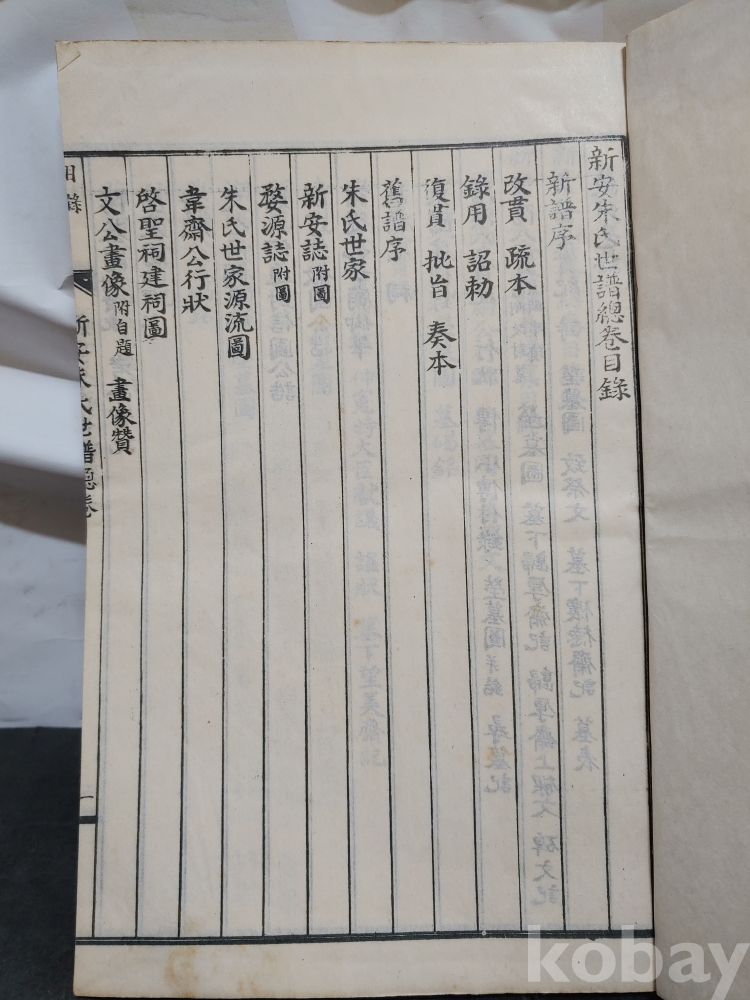 新安朱氏世譜總卷目錄
新譜序
改貫 疏本
錄用 詔勅
復貫 批旨 奏本
舊譜序
朱氏世家
新安誌附圖
婺源誌附圖
朱氏世家源流圖
韋齋公行狀
啓聖祠建祠圖
文公畫像附自題 畫像贊
目錄
新安朱氏世譜總卷
一
kobay